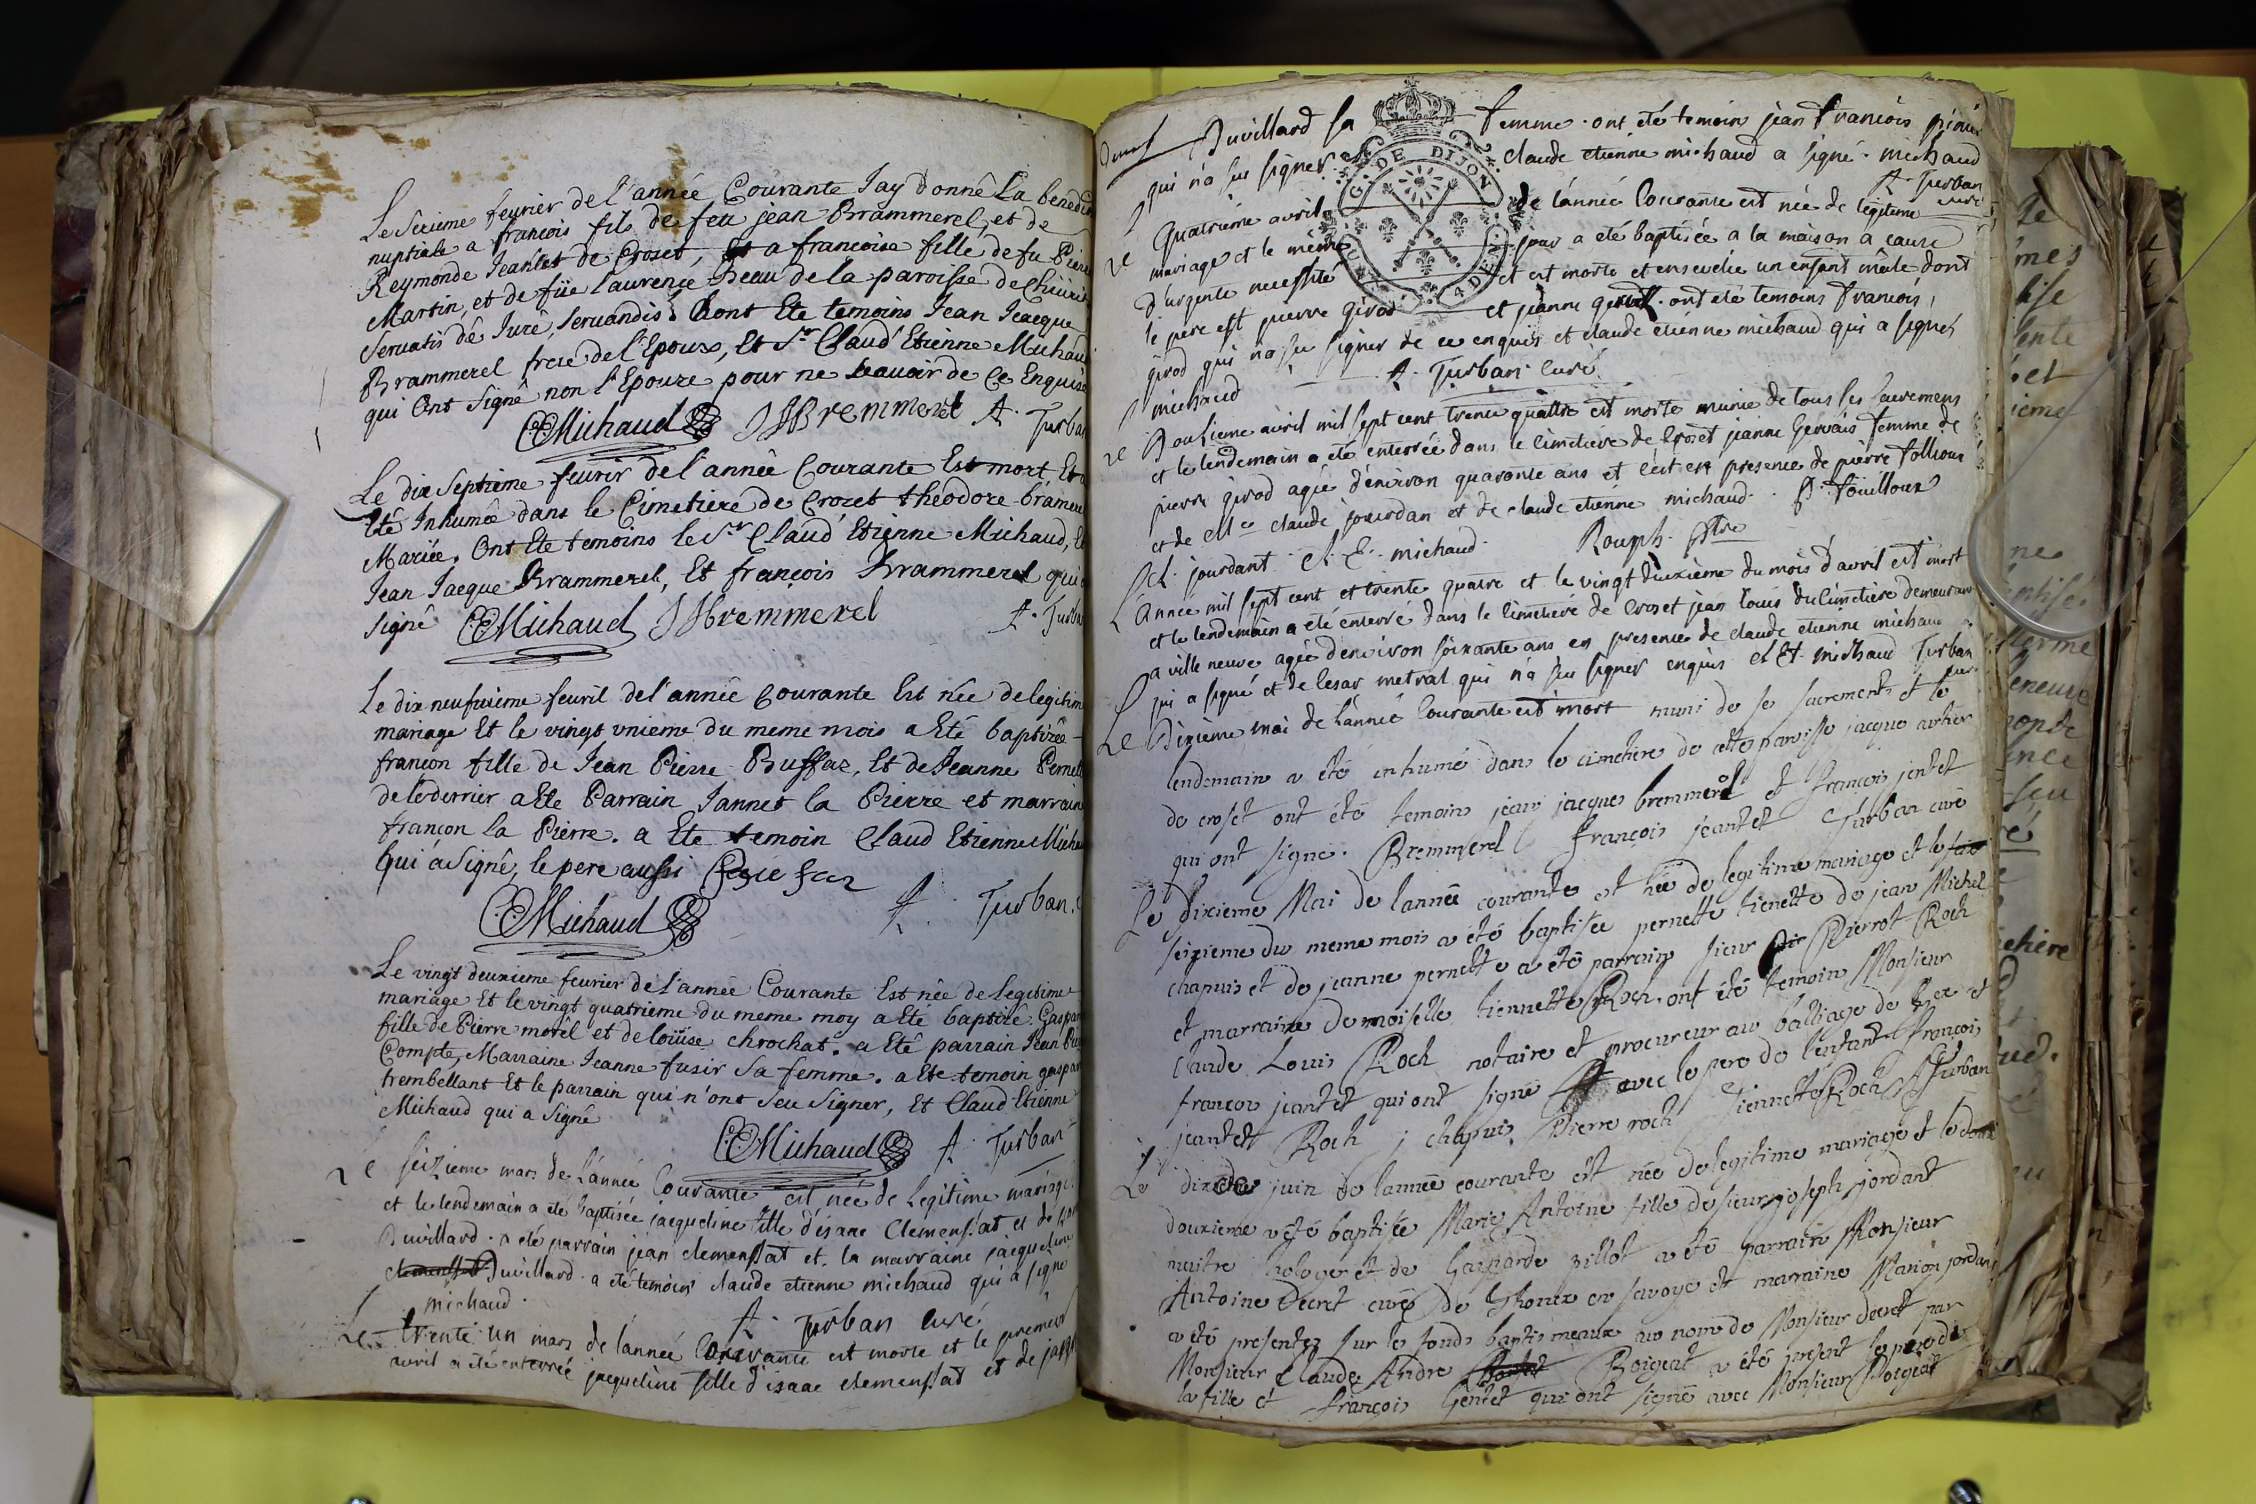 Le Seziême feurier de l'année Courante Jay donnê La benedi
nuptiale a francois fils de feu jean Brammerel, et de
Reymonde Jeantet de Crozet, a francoise fille de fu Pierre
Martin, et de füe laurence Beau de la paroisse de
Servatis dê Jurê, Servandis Ont Ete temoins Jean Jacque
Brammerel frere de l'Epoux, Et Sr Claud Etienne Michaud
qui Ont Signê non l'Epouze pour ne Scauoir de Ce Enquise
CEMichaud JJBremmerel A. Turban
Le dix Septieme feurir de l'année Courante Est mort Et
êtê Inhumêe dans le Cimetiere de Crozet théodore bramere
Mariée. Ont Ete temoins le Sr Claud Etienne Michaud,
Jean Jacque Brammerel, Et françois Brammerel qui
Signê CEMichaud JJBremmerel A. Turba
Le dix neufuieme feuril de l'année Courante Est née de legitim
mariage Et le vingt vnieme du meme mois a Eté baptizêe
françon fille de Jean Pierre Buffaz, Et de Jeanne Pernette
delederrier a Ete Parrain Jannet la Pierre et marraine
françon la Pierre. a Ete temoin Claud Etienne Micha
Qui a Signê, le pere aussi
CEMichaud A. Turban. c
Le vingt deuxieme feurier de l'année Courante Est née de legitime
mariage Et le vingt quatrieme du meme moy a Eté baptizé Gaspar
fille de Pierre morêl et de loüise chrochat. a Eté parrain Jean Pie
Compte, Marraine Jeanne fusir Sa femme. a Ete temoin gaspar
trembellant Et le parrain qui n'ont Seu Signer, Et Claud Etienne
Michaud qui a Signé
CEMichaud A. Turban
Le seizieme mars de L'année Courante est née de Legitime mariage
et le lendemain a eté baptisée jacqueline fille d'isaac Clemensat et de
Duvillard. a eté parrain jean clemensat et. la marraine jacqueline
clemensat Duvillard. a eté temoin claude etienne michaud qui a signe
michaud. A. Turban curé.
Le trente un mars de l'année Courante est morte et le premier
avril a été enterrée jacqueline fille d'isaac clemensat et de
Duvillard sa femme. ont eté temoin jean francois
qui n'a su signer claude etienne michaud a signé. michaud
A. Turban curé
Le quatriéme avril de l'année Courante est née de legitime
mariage et le même jour a été baptisée a la maison a cause
D'urgente necessité et est morte et ensevelie un enfant mêle dont
le pere est pierre girod et jeanne ont eté temoins francois
girod qui n'a su signer de ce enquis et claude etiénne michaud qui a signé
michaud A. Turban curé
Le Douzieme avril mil sept cent trente quattre est morte munie de tous les sacremens
et le lendemain a été enterrée dans le cimetiére de Crozet jeanne Gervais femme de
pierre girod agée d'environ quarante ans et c'est en presence de pierre follioux
et de Me claude jourdan et de claude etienne michaud. P. foüilloux
Cl. jourdant. Cl. E. michaud. Rouph. ptre
L'année mil sept cent et trente quatre et le vingt deuxième du mois d'avril est mort
et le lendemain a été enterré dans le cimetiére de Crozet jean Louis du Cimetiére demeurant
a ville neuve agée d'environ soixante ans en presence de claude etienne michaud
qui a signé et de Cesar metral qui n'a su signer enquis Cl Et michaud Turban
curé
Le Dixieme mai de l'année Courante est mort muni de se sacrements et le
lendemain a été inhumé dans le cimetiere de cette paroisse jacque
de croset ont été temoins jean jacques bremmerel et francois jentet
qui ont signé. Bremmerel françois jeantet Turban curé
Le dixieme Mai de l'année courante est née de legitime mariage et le
seizieme du meme mois a été baptisée pernette tienette de jean Michel
chapuis et de jeanne pernette a été parrain sieur Pierrot Roch
et marraine Demoiselle tiennette Roch. ont été temoin Monsieur
Claude Louis Roch notaire et procureur au balliage de Gex et
françois jeantet qui ont signé avec le pere de l'enfant françois
jeantet Roch j chapuis Pierre roch Tiennette Roch A Turban
Le dixieme juin de l'année courante est née de legitime mariage et le
douzieme a été baptisée Marie Antoine fille de sieur joseph jordant
maitre horloger et de Gasparde Billot a été parrain Monsieur
Antoine Decret curé de Thonex en savoye et marraine Marion jordan
a été presentez sur le fonds baptismeaux au nom de Monsieur decret par
Monsieur Claude Andre Roigeat a été present le pere de
la fille et françois Gentet qui ont signé avec Monsieur Roigeat
G. DE DIJON
QUAT. 4 DEN